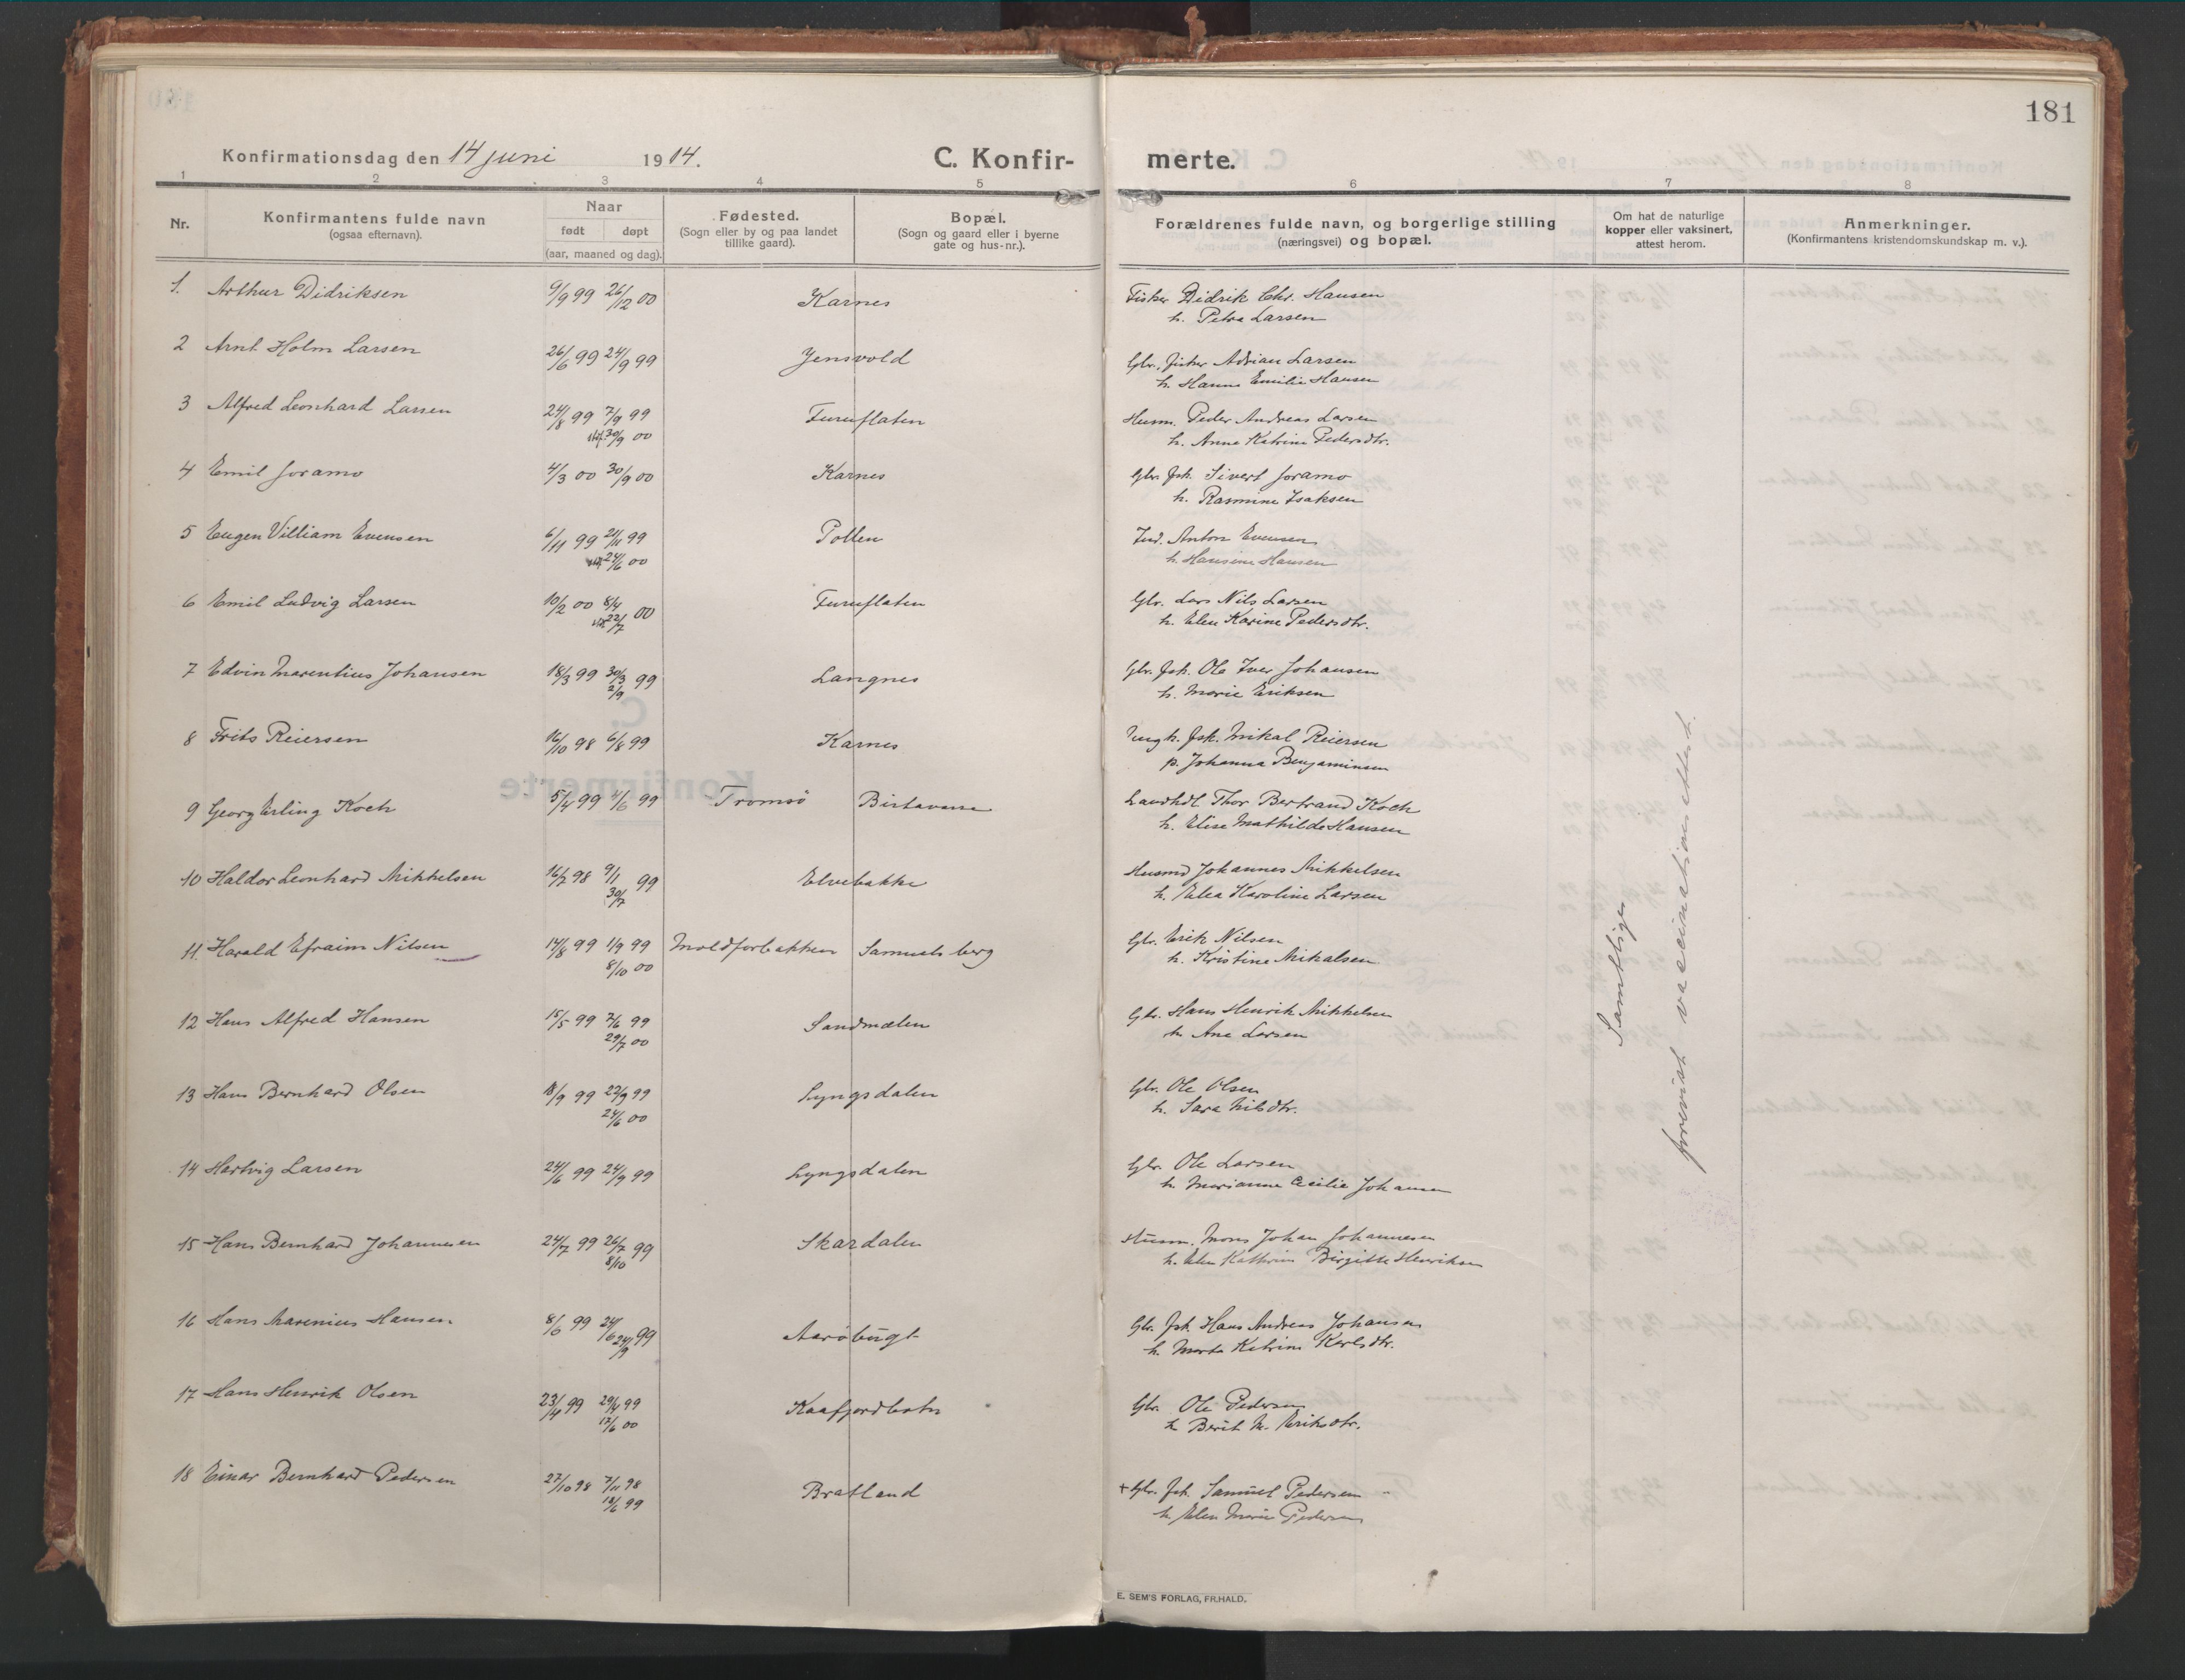 181
Konfirmationsdag den 14 juni 1914.
C. Konfir- merte.
1 2 3 4 5 6 7 8
Nr.
Konfirmantens fulde navn
(ogsaa efternavn).
Naar
født døpt
(aar, maaned og dag).
Fødested.
(Sogn eller by og paa landet
tillike gaard).
Bopæl.
(Sogn og gaard eller i byerne
gate og hus-nr.).
Forældrenes fulde navn, og borgerlige stilling
(næringsvei) og bopæl.
Om hat de naturlige
kopper eller vaksinert,
attest herom.
Anmerkninger.
(Konfirmantens kristendomskundskap m. v.).
1. Arthur Didriksen 9/9 99 26/12 00 Karnes Fisker Didrik Chr. Hansen
h. Petra Larsen
2 Arnt Holm Larsen 26/6 99 24/9 99 Jensvold Gbr. fisker Adrian Larsen
h. Hanna Emilie Hansen
3 Alfred Leonhard Larsen 24/8 99 7/9 99 Furuflaten Husm. Peder Andreas Larsen
30/9 00 h. Anna Katrine Pedersdtr.
4 Emil Joramo 4/3 00 30/9 00 Karnes Gbr. fsk. Sivert Joramo
h. Rasmine Isaksen
5 Eugen Villiam Evensen 6/11 99 99 Pollen Ind. Anton Evensen
24/6 00 h. Hansine Hansen
6 Emil Ludvig Larsen 10/2 00 8/4 00 Furuflaten Gbr. Lars Nils Larsen
22/7 h. Elen Karine Pedersdtr.
7 Edvin Marentius Johansen 18/3 99 30/3 99 Langnes Gbr. fsk. Ole Iver Johansen
2/9 h. Marie Eriksen
8 Frits Reiersen 16/10 98 6/8 99 Karnes Ungk. fsk. Mikal Reiersen
p. Johanna Benjaminsen
9 Georg Erling Koch 5/4 99 4/6 99 Tromsö Birtavarre Landhdl. Thor Bertrand Koch
h. Elise Mathilde Hansen
10 Haldor Leonhard Mikkelsen 98 9/1 99 Elvebakke Husmd Johannes Mikkelsen
30/7 h. Elea Karoline Larsen
11. Harald Efraim Nilsen 14/8 99 1/9 99 Moldforbakken Samuelsberg Gbr. Erik Nilsen
8/10 00 h. Kristine Mikalsen
12 Hans Alfred Hansen 15/5 99 7/6 99 Sandmælen Gbr. Hans Henrik Mikkelsen
29/7 00 h. Ane Larsen
13 Hans Bernhard Olsen 99 99 Lyngsdalen Gbr. Ole Olsen
24/6 00 h. Sara Nilsdtr.
14 Hartvig Larsen 24/6 99 24/9 99 Lyngsdalen Gbr. Ole Larsen
h. Marianne Cecilie Johansen
15 Hans Bernhard Johannesen 24/7 99 26/7 99 Skardalen Husm. Mons Johan Johannesen
8/10 h. Elen Kathrine Birgitte Henriksen
16 Hans Marenius Hansen 8/6 99 24/6 24/9 99 Aarøbugt Gbr. fsk. Hans Andreas Johansen
h. Marta Katrine Karlsdtr.
17 Hans Henrik Olsen 23/4 99 29/4 99 Kaafjordbotn Gbr. Ole Pedersen
17/6 00 h. Berit M. Eriksdtr.
18 Einar Bernhard Pedersen 27/10 98 7/11 98 Bratland + Gbr. fsk. Samuel Pedersen
18/6 99 h. Elen Marie Pedersen
Samtlige
forevist vaccinationsattest.
E. SEM'S FORLAG, FR.HALD.